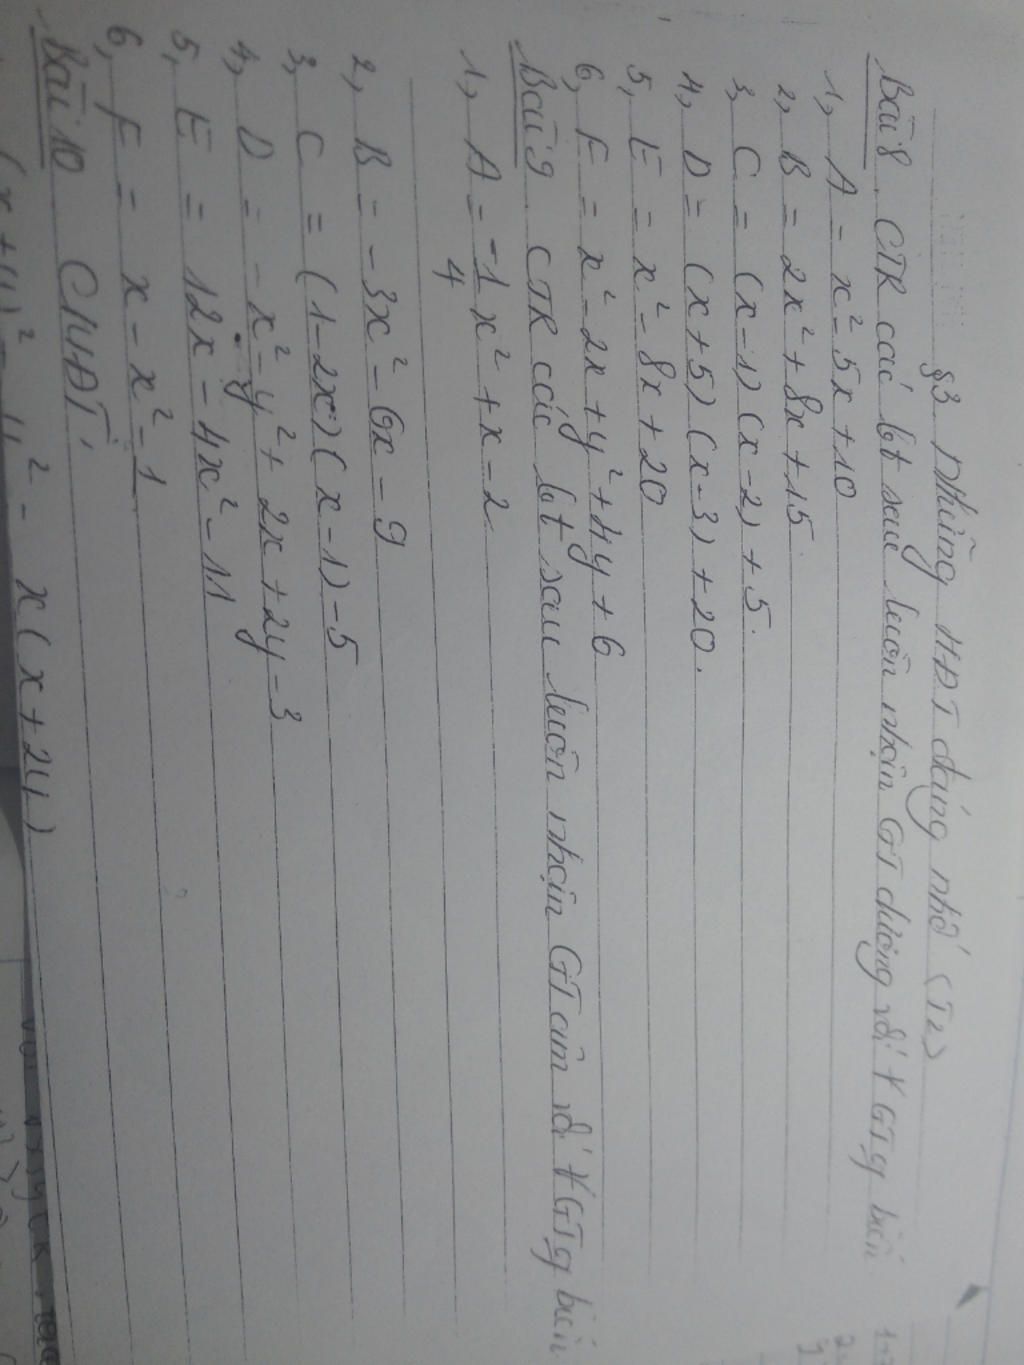 §3 Những HĐT đáng nhớ (T2)
Bài 8 CTR các bt sau luôn nhận GT dương với ∀ GT of biến
1, A = x² - 5x + 10
2, B = 2x² + 8x + 15
3, C = (x - 1)(x - 2) + 5
4, D = (x + 5)(x - 3) + 20.
5, E = x² - 8x + 20
6, F = x² - 2x + y² + 4y + 6
Bài 9 CTR các bt sau luôn nhận GT âm với ∀ GT of biến
1, A = -1/4 x² + x - 2
2, B = -3x² - 6x - 9
3, C = (1 - 2x)(x - 1) - 5
4, D = -x² - y² + 2x + 2y - 3
5, E = 12x - 4x² - 11
6, F = x - x² - 1
Bài 10 CMĐT